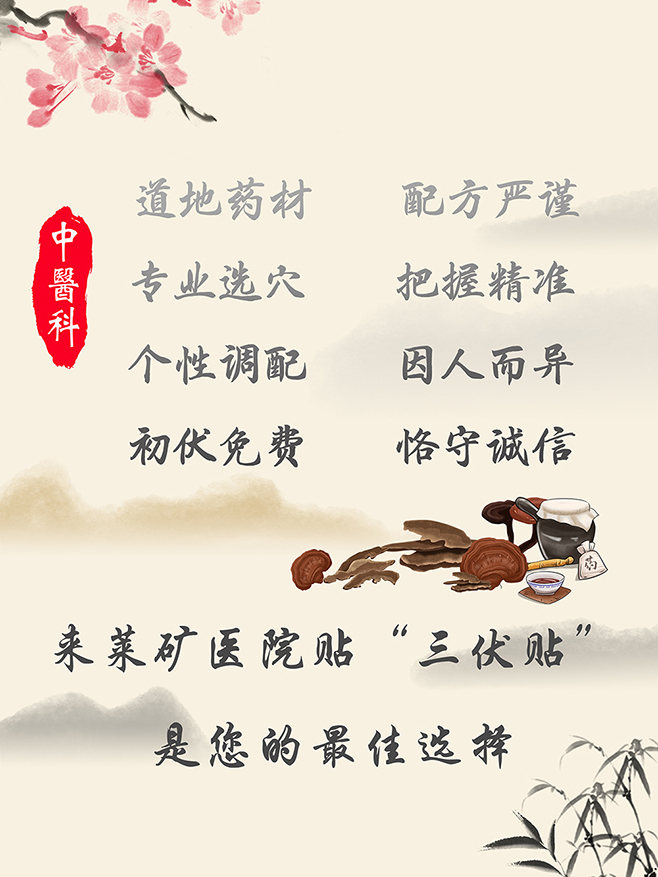 中醫科
道地药材 配方严谨
专业选穴 把握精准
个性调配 因人而异
初伏免费 恪守诚信
药
来莱矿医院贴“三伏贴”
是您的最佳选择